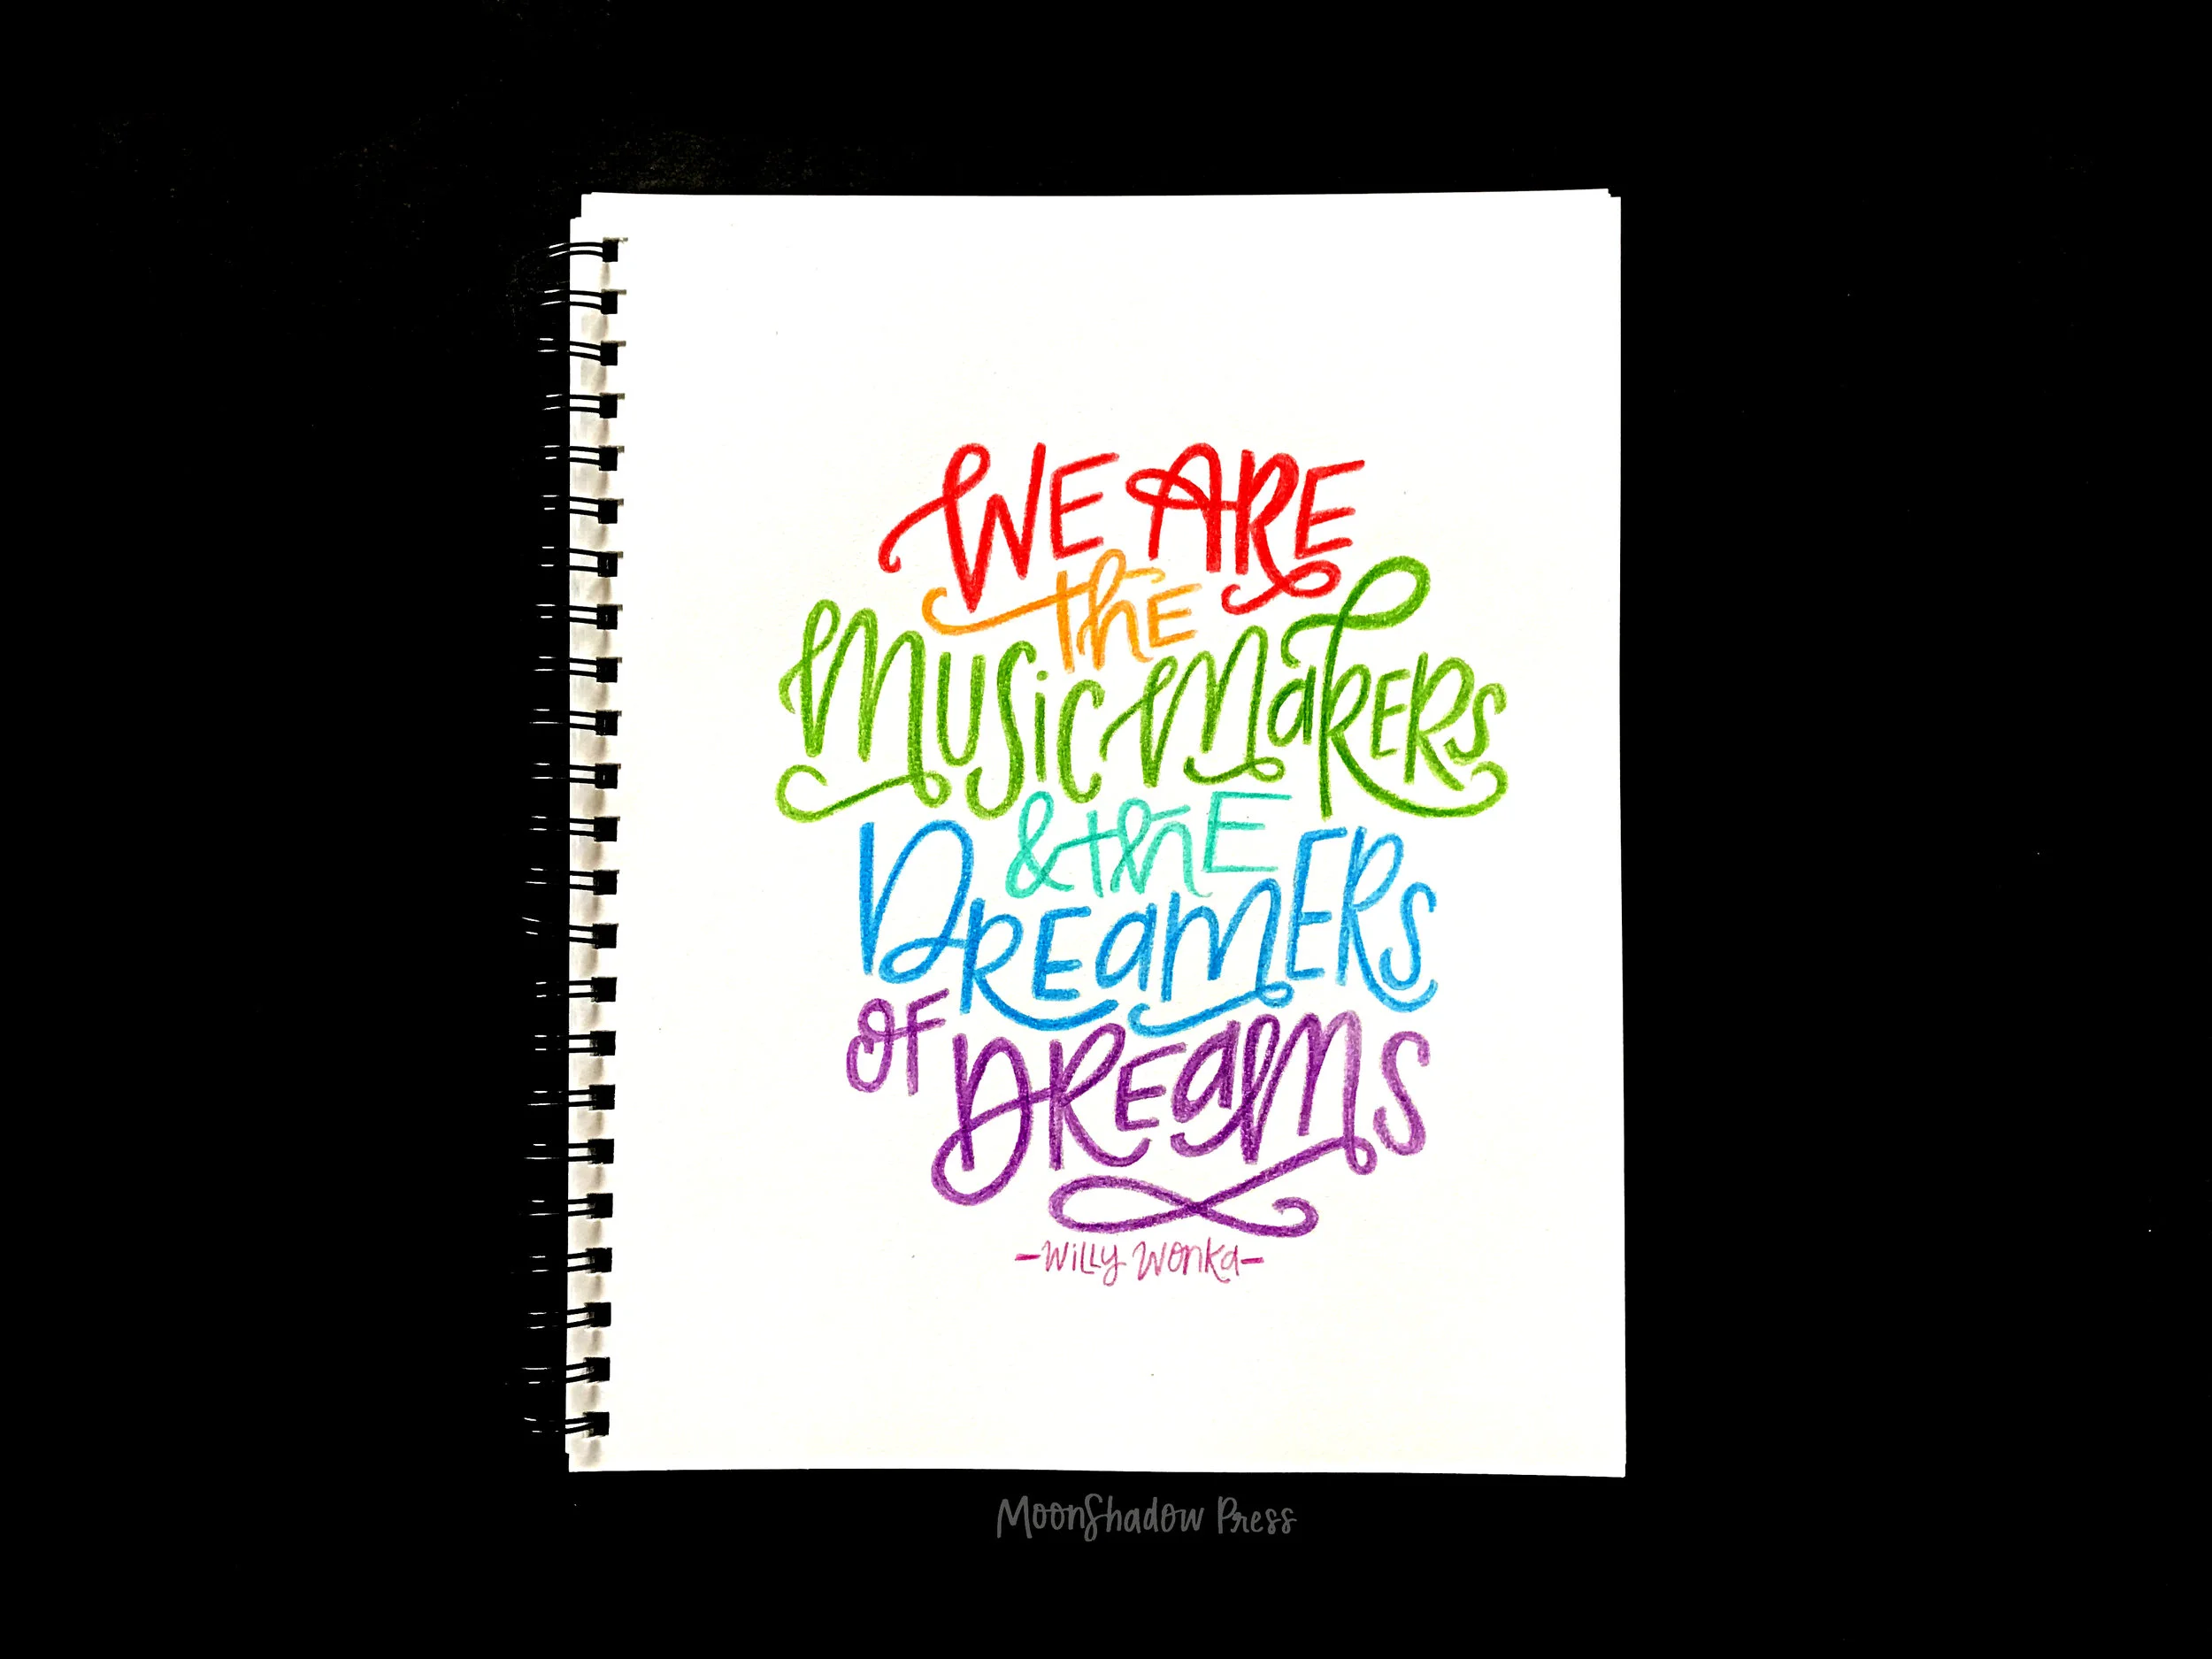 WE ARE
the
Music Makers
& the
Dreamers
of Dreams
-Willy Wonka-
MoonShadow Press